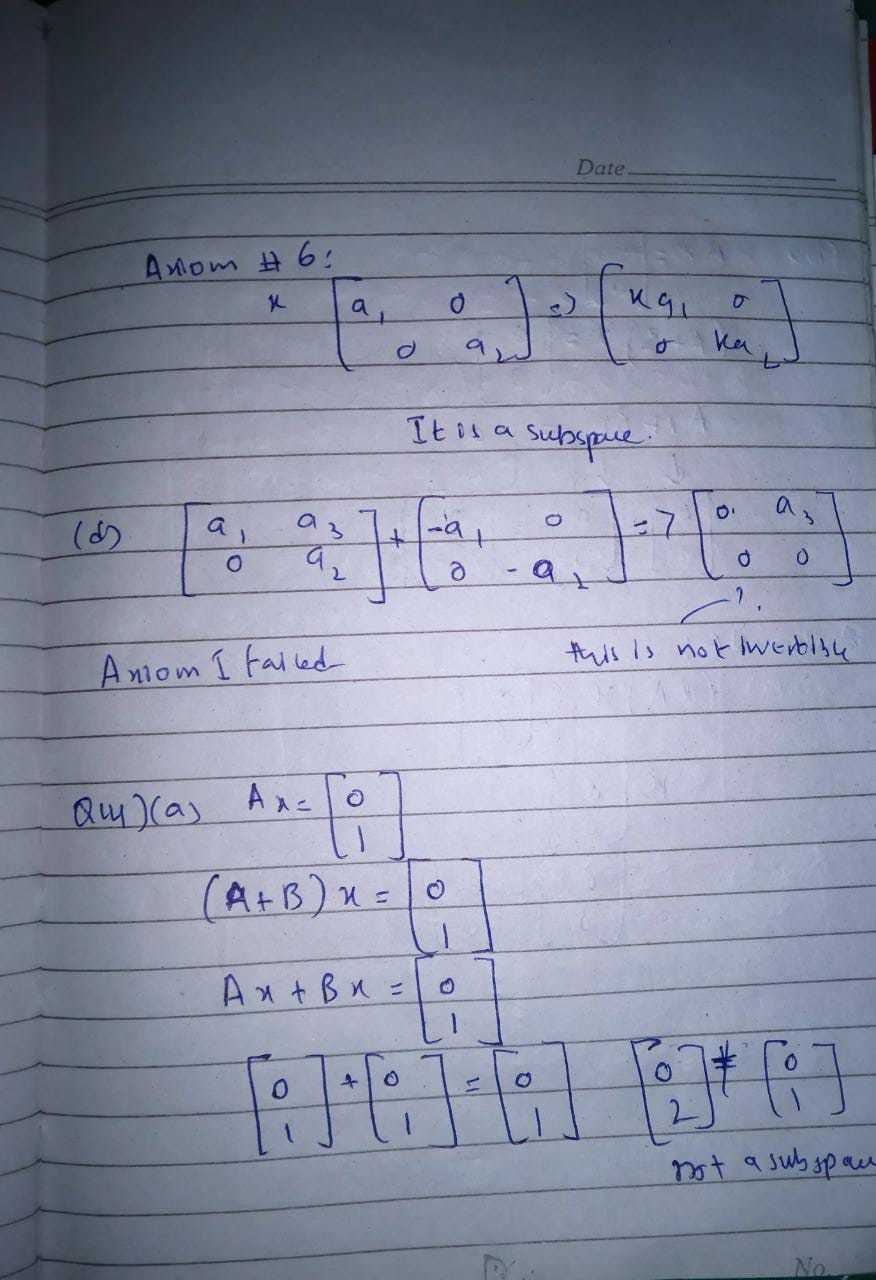 Date
Axiom # 6:
k [a₁ 0; 0 a₂] => [ka₁ 0; 0 ka₂]
It is a subspace.
(d) [a₁ a₃; 0 a₂] + [-a₁ 0; 0 -a₂] => [0 a₃; 0 0]
Axiom 1 failed this is not invertible
Q4)(a) Ax = [0; 1]
(A+B)x = [0; 1]
Ax + Bx = [0; 1]
[0; 1] + [0; 1] = [0; 1] [0; 2] ≠ [0; 1]
not a subspace
No.